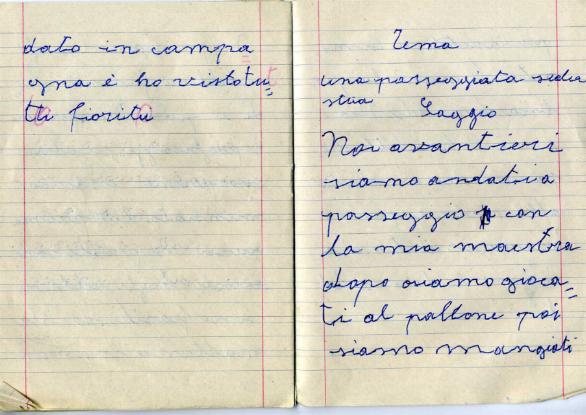 dato in campa=
gna è ho vistotu=
tti fioritu
Tema
una passeggiata
stua
Saggio
Noi avantieri
siamo andati a
passeggio con
la mia maestra
dopo siamo gioca=
ti al pallone poi
siamo mangiati